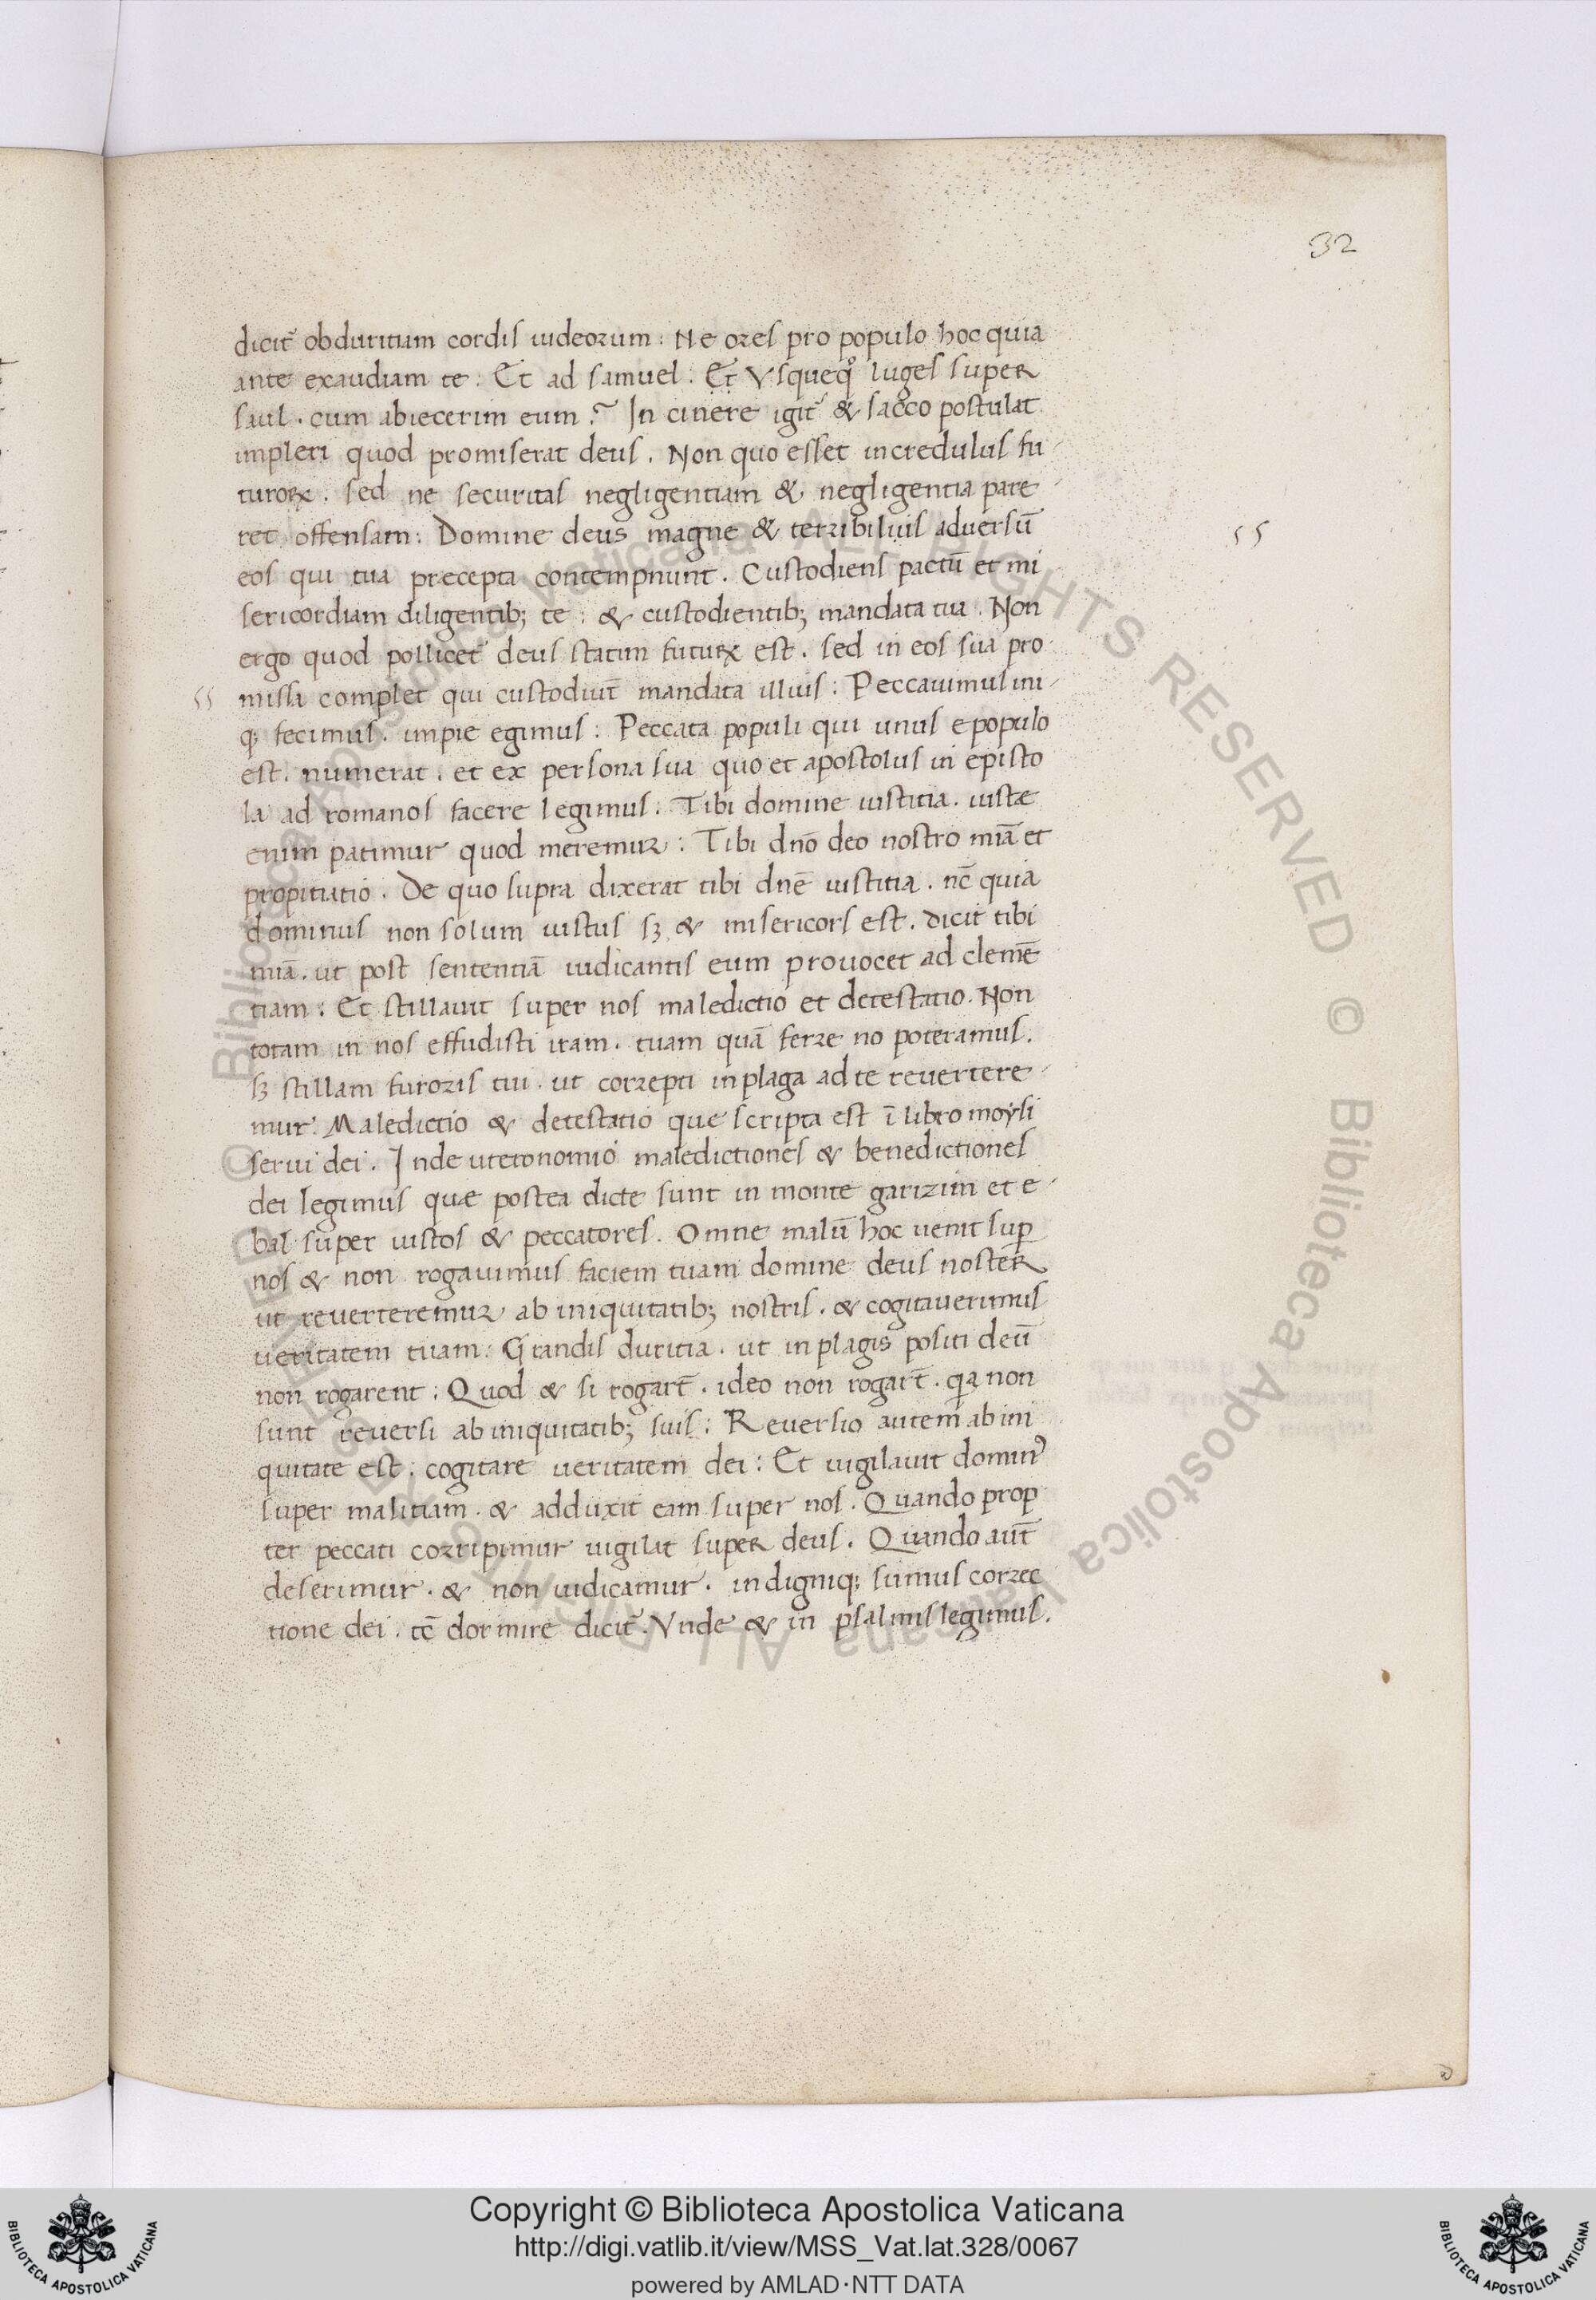 32
dicit̃ obduritiam cordis iudeorum: Ne ores pro populo hoc quia
ante exaudiam te: Et ad samuel: Et Vsqueq̊ luges super
saul. cum abiecerim eum? In cinere igit̃ & sacco postulat
impleri quod promiserat deus. Non quo esset incredulus fu
turoꝝ. sed ne securitas negligentiam & negligentia pare
ret offensam: Domine deus magne & terribilis adversū
eos qui tua precepta contempnunt. Custodiens pactū et mi
sericordiam diligentib; te: & custodientib; mandata tua. Non
ergo quod pollicet̃ deus statim futuꝝ est. sed in eos sua pro
missa complet qui custodiūt mandata illius: Peccauimus ini
q; fecimus. impie egimus: Peccata populi qui unus e populo
est. numerat. et ex persona sua quo et apostolus in episto
la ad romanos facere legimus: Tibi domine iustitia. iustæ
enim patimur quod meremur: Tibi dnō deo nostro miā et
propitiatio. De quo supra dixerat tibi dnē iustitia. nc̄ quia
dominus non solum iustus sꝫ & misericors est. dicit tibi
miā. ut post sententiā iudicantis eum prouocet ad clemē
tiam: Et stillauit super nos maledictio et detestatio. Non
totam in nos effudisti iram. tuam quā ferre no poteramus.
sꝫ stillam furoris tui. ut correpti in plaga ad te revertere
mur. Maledictio & detestatio que scripta est ī libro moysi
serui dei. Inde uteronomio maledictiones & benedictiones
dei legimus quæ postea dicte sunt in monte garizim et e
bal super iustos & peccatores. Omne malū hoc uenit suꝑ
nos & non rogauimus faciem tuam domine deus noster
ut reverteremur ab iniquitatib; nostris. & cogitaverimus
ueritatem tuam: Grandis duritia. ut in plagis positi deū
non rogarent: Quod & si rogart̄. ideo non rogart̄. qꝗ non
sunt reuersi ab iniquitatib; suis: Reuersio autem ab ini
quitate est. cogitare ueritatem dei: Et uigilauit domin᾽
super malitiam. & adduxit eam super nos. Quando prop
ter peccati corripimur uigilat super deus. Quando aut̄
deserimur. & non iudicamur. indigniq; sumus correc
tione dei. tc̄ dormire dicit̃. Vnde & in psalmis legimus.
Copyright © Biblioteca Apostolica Vaticana
http://digi.vatlib.it/view/MSS_Vat.lat.328/0067
powered by AMLAD·NTT DATA
BIBLIOTECA APOSTOLICA VATICANA
BIBLIOTECA APOSTOLICA VATICANA